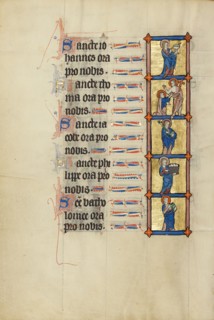 Sancte io
hannes ora
pro nobis.
Sancte tho
ma ora pro
nobis.
Sancte ia
cobe ora pro
nobis.
Sancte phi
lippe ora pro
nobis.
Sce bartho
lomee ora
pro nobis.